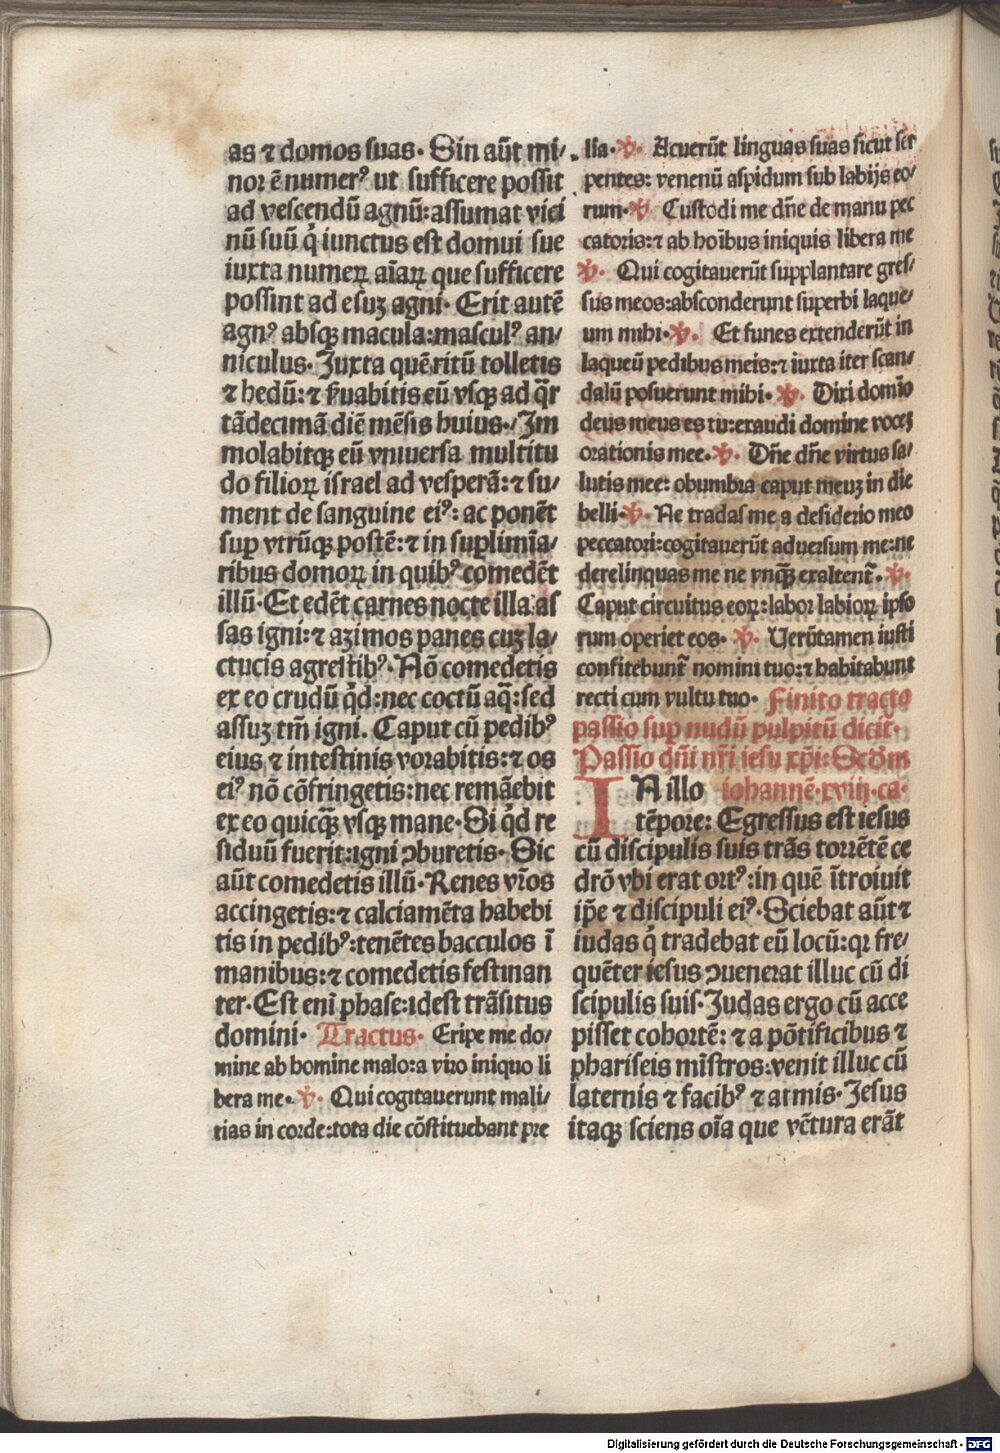 as ⁊ domos suas. Sin aūt mi/
nor ē numerꝰ ut sufficere possit
ad vescendū agnū: assumat vici
nū suū q̇ iunctus est domui sue
iuxta numeꝝ aīaꝝ que sufficere
possint ad esuꝫ agni. Erit autē
agnꝰ absqꝫ macula: masculꝰ an/
niculus. Juxta quē ritū tolletis
⁊ hedū: ⁊ ẜuabitis eū vsqꝫ ad q̄r
tādecimā diē mēsis huius. Im
molabitqꝫ eū vniuersa multitu
do filioꝝ israel ad vesperā: ⁊ su/
ment de sanguine eiꝰ: ac ponēt
suꝑ vtrūqꝫ postē: ⁊ in suꝑlimīa/
ribus domoꝝ in quibꝰ comedēt
illū. Et edēt carnes nocte illa as
sas igni: ⁊ azimos panes cuꝫ la/
ctucis agrestibꝰ. Nō comedetis
ex eo crudū q̇d: nec coctū aq̄: sed
assuꝫ tm̄ igni. Caput cū pedibꝰ
eius ⁊ intestinis vorabitis: ⁊ os
eiꝰ nō cōfringetis: nec remāebit
ex eo quicq̄ꝫ vsqꝫ mane. Si q̇d re
siduū fuerit: igni ꝯburetis. Sic
aūt comedetis illū. Renes vr̄os
accingetis: ⁊ calciamēta habebi
tis in pedibꝰ: tenētes bacculos ī
manibus: ⁊ comedetis festinan
ter. Est enī phase: idest trāsitus
domini. Tractus. Eripe me do/
mine ab homine malo: a viro iniquo li
bera me. ℣. Qui cogitauerunt mali/
tias in corde: tota die cōstituebant pre
lia. ℣. Acuerūt linguas suas sicut ser
pentes: venenū aspidum sub labijs eo/
rum. ℣. Custodi me dn̄e de manu pec
catoris: ⁊ ab hoībus iniquis libera me
℣. Qui cogitauerūt supplantare gres/
sus meos: absconderunt superbi laque/
um mihi. ℣. Et funes extenderūt in
laqueū pedibus meis: ⁊ iuxta iter scan/
dalū posuerunt mihi. ℣. Dixi domīo
deus meus es tu: exaudi domine voceꝫ
orationis mee. ℣. Dn̄e dn̄e virtus sa/
lutis mee: obumbra caput meuꝫ in die
belli. ℣. Ne tradas me a desiderio meo
peccatori: cogitauerūt aduersum me: ne
derelinquas me ne vnq̄ꝫ exaltent̄. ℣.
Caput circuitus eoꝝ: labor labioꝝ ipso
rum operiet eos. ℣. Uerūtamen iusti
confitebunt̄ nomini tuo: ⁊ habitabunt
recti cum vultu tuo. Finito tracto
passio suꝑ nudū pulpitū dicit̄.
Passio dn̄i nr̄i iesu xp̄i: Scd̄m
IN illo iohannē. xviij. ca.
tēpore: Egressus est iesus
cū discipulis suis trās torrētē ce
drō vbi erat ortꝰ: in quē ītroiuit
ip̄e ⁊ discipuli eiꝰ. Sciebat aūt ⁊
iudas q̇ tradebat eū locū: qꝛ fre/
quēter iesus ꝯuenerat illuc cū di
scipulis suis. Judas ergo cū acce
pisset cohortē: ⁊ a pōtificibus ⁊
phariseis mīstros: venit illuc cū
laternis ⁊ facibꝰ ⁊ armis. Jesus
itaqꝫ sciens oīa que vētura erāt
Digitalisierung gefördert durch die Deutsche Forschungsgemeinschaft - DFG